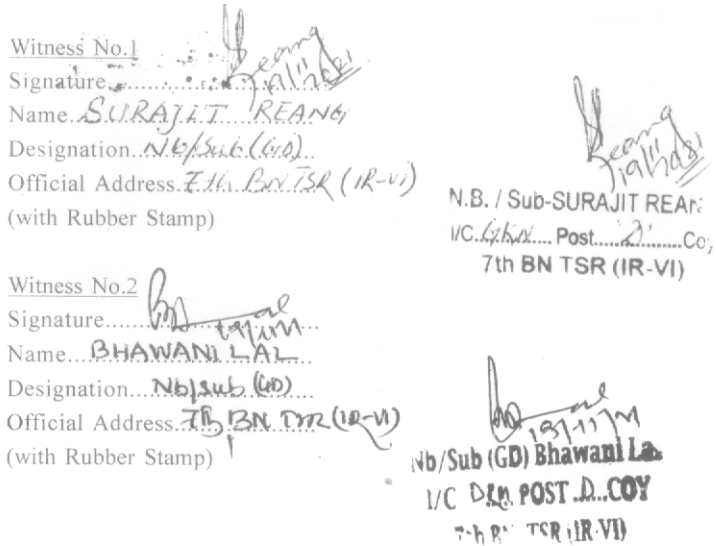 Witness No.1
Signature.................... Reang 19/11/2021
Name..SURAJIT REANG
Designation..Nb/Sub (GD)..
Official Address.7th. BN TSR (IR-VI)
(with Rubber Stamp)
Reang 19/11/2021
N.B. / Sub-SURAJIT REAN
I/C.......... Post.....'D'.........Coy
7th BN TSR (IR-VI)
Witness No.2
Signature.................... 19/11/21
Name...BHAWANI LAL....
Designation...Nb/sub (GD)
Official Address.7th BN TSR (IR-VI)
(with Rubber Stamp)
19/11/21
Nb/Sub (GD) Bhawani La
I/C POST .D..COY
7th BN TSR (IR-VI)